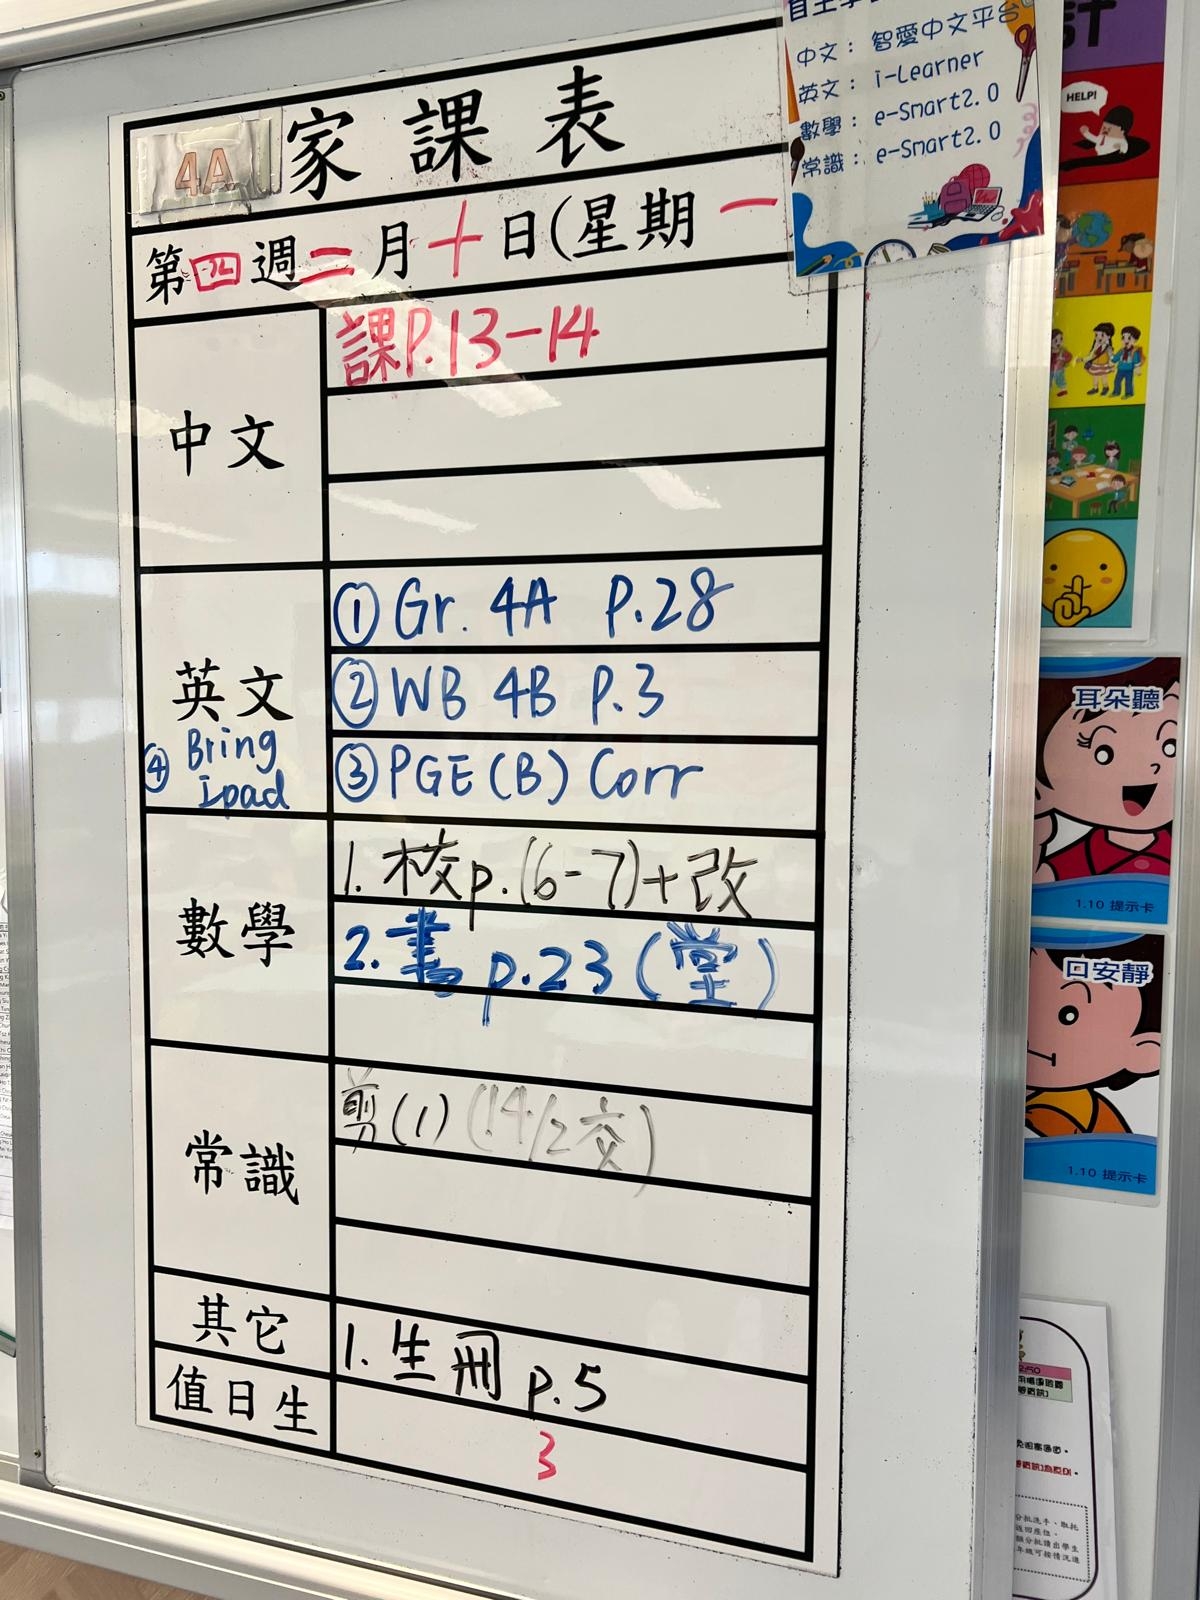 4A
家課表
第四週二月十日(星期一
中文
課P.13-14
英文
① Gr. 4A P.28
② WB 4B P.3
③ PGE(B) Corr
④ Bring
Ipad
數學
1. 校p.(6-7)+改
2. 書p.23(堂)
常識
剪(1) (14/2交)
其它
1. 生冊 p.5
值日生
3
中文：智愛中文平台
英文：i-Learner
數學：e-Smart2.0
常識：e-Smart2.0
計
HELP!
耳朵聽
1.10 提示卡
口安靜
1.10 提示卡